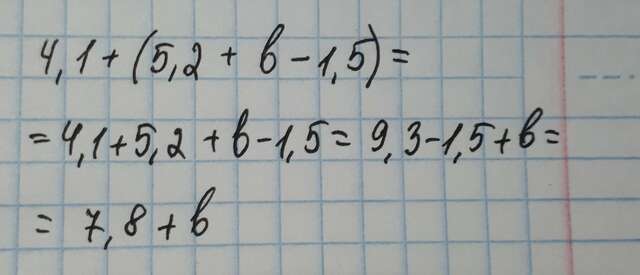 4,1 + (5,2 + в - 1,5) =
= 4,1 + 5,2 + в - 1,5 = 9,3 - 1,5 + в =
= 7,8 + в